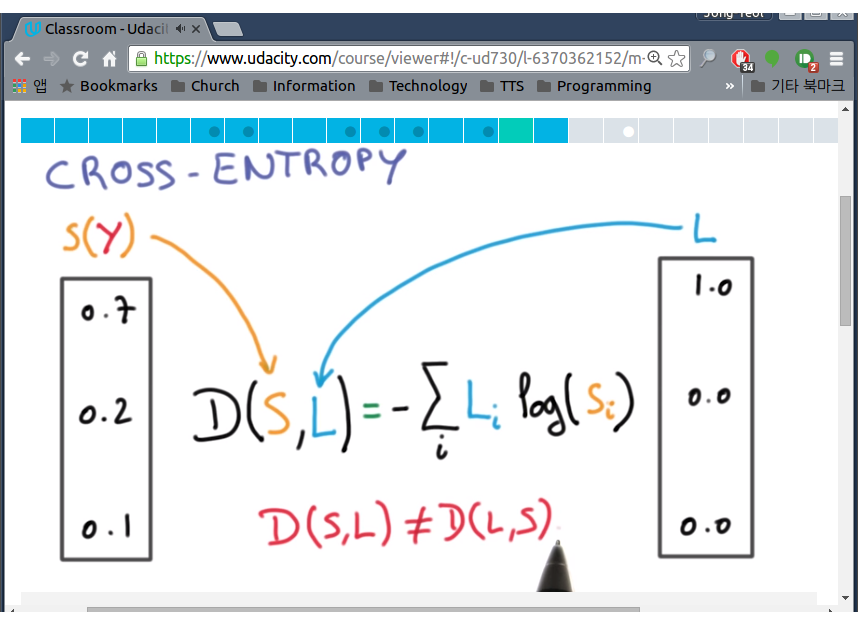 Jong Yeol
Classroom - Udacit
https://www.udacity.com/course/viewer#!/c-ud730/l-6370362152/m-
34
2
앱 Bookmarks Church Information Technology TTS Programming » 기타 북마크
CROSS-ENTROPY
S(Y)
L
0.7
0.2
0.1
D(S,L) = - ∑i Li log(Si)
D(S,L) ≠ D(L,S)
1.0
0.0
0.0